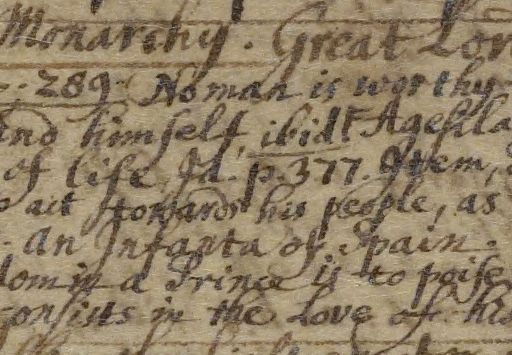 Monarchy. Great Lor
289. No man is worthy
himself, ibid. Agesila
of life, Id. p. 377. Item,
act towards his people, as
An Infanta of Spain.
dom in a Prince is to poise
consists in the Love of his